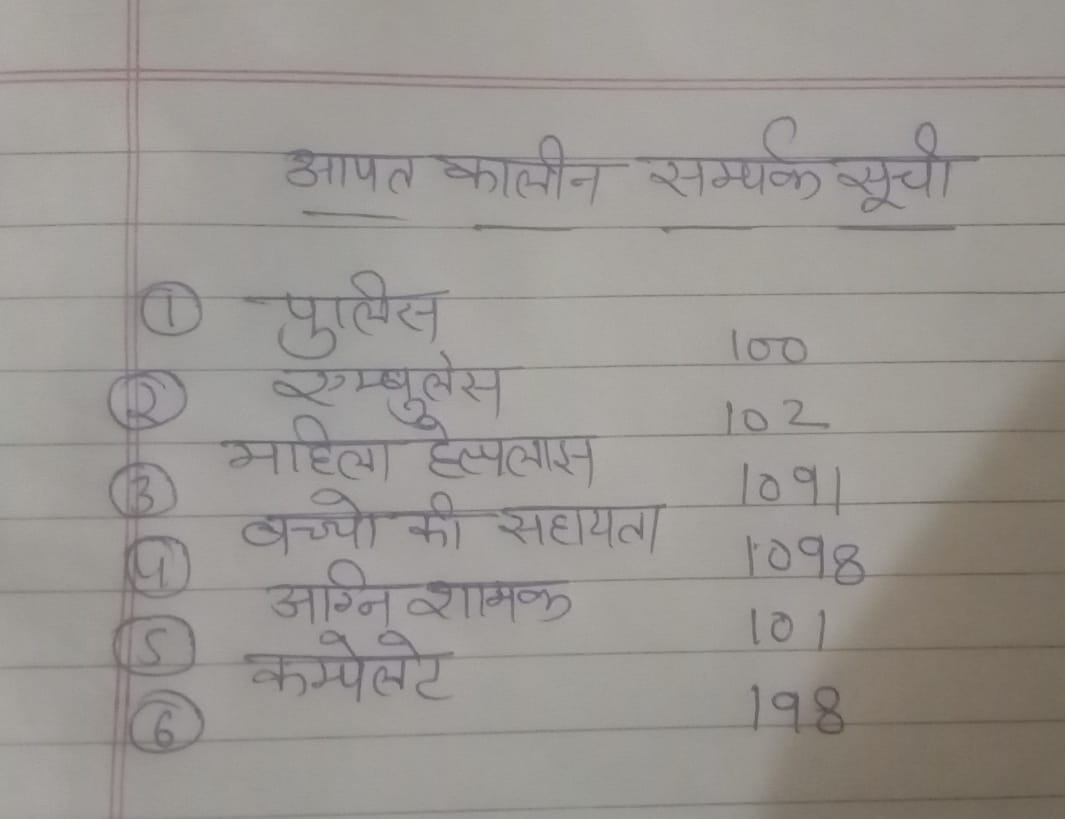 आपत कालीन सम्पर्क सूची
1 पुलिस 100
2 एम्बुलेस 102
3 महिला हेल्पलास 1091
4 बच्चो की सहायता 1098
5 अग्नि शामक 101
6 कम्पेलेट 198